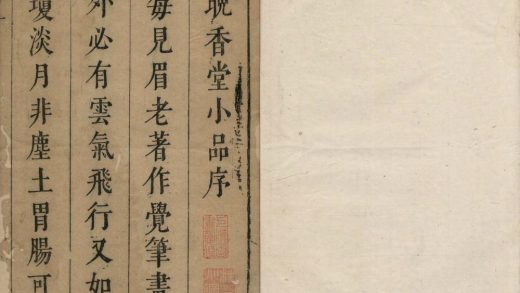 晚香堂小品序
每見眉老著作覺筆畫
外必有雲氣飛行又如
瓊淡月非塵土胃腸可